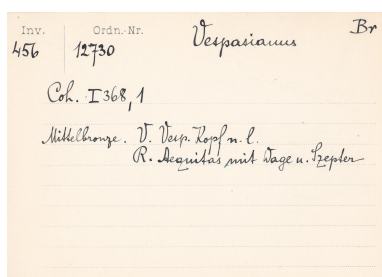 Inv. Ordn.-Nr. Vespasianus Br
456 12730
Coh. I 368, 1
Mittelbronze. V. Vesp. Kopf n. l.
R. Aequitas mit Wage u. Szepter